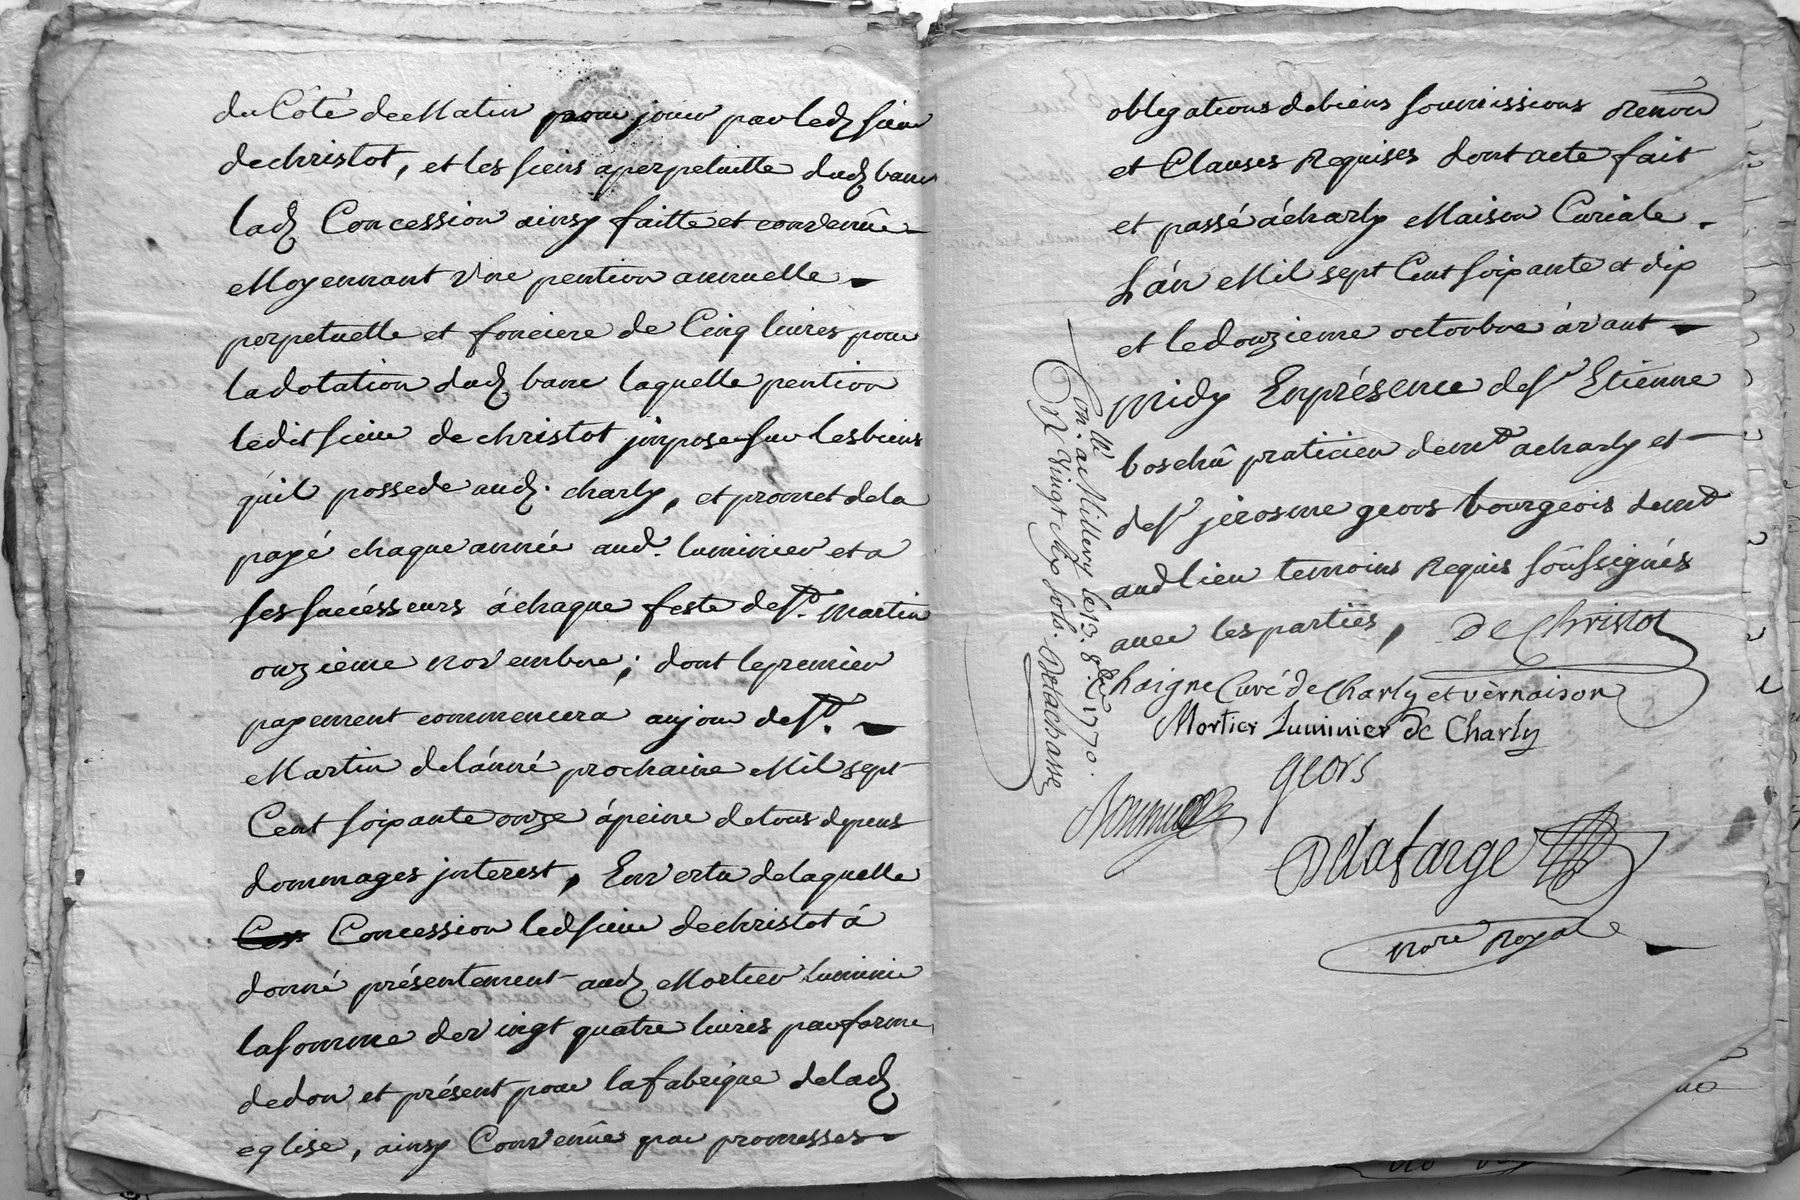 du Côté de Matin pour jouir par led. sieur
de christot, et les siens a perpetuitté dud. banc
lad. Concession ainsy faitte et convenüe
Moyennant une pention annuelle
perpetuelle et fonciere de Cinq livres pour
la dotation dud. banc laquelle pention
ledit sieur de christot impose sur les biens
qu'il possede aud. charly, et promet de la
payé chaque année aud. luminier et a
ses succésseurs á chaque feste de St. Martin
onzieme novembre; dont le premier
payement commencera au jour de St.
Martin de lánné prochaine Mil sept
Cent soixante onze á peine de tous depens
dommages interest, En vertu de laquelle
Concession led. sieur de christot á
donné présentement aud. Mortier Luminie
la somme de vingt quatre livres par forme
de don et présent pour la fabrique de lad.
eglise, ainsy Convenüe par promesses
obligations de biens soumissions Renon
et Clauses Requises dont acte fait
et passé á charly Maison Curiale.
L'án Mil sept Cent soixante et dix
et le douzieme octoubre ávant
midy En présence de sr. Etienne
boschû praticien demt. a charly et
de sr. jerosme geors bourgeois demt.
aud. lieu temoins Requis soûssignés
avec les partiës, De Christot
Chaigne Curé de Charly et vèrnaison
Mortier Luminier de Charly
geors
Delafarge
Nore Royal
Conllé. a Millery le 13. 8bre 1770.
Rx vingt six sols. Delachasse